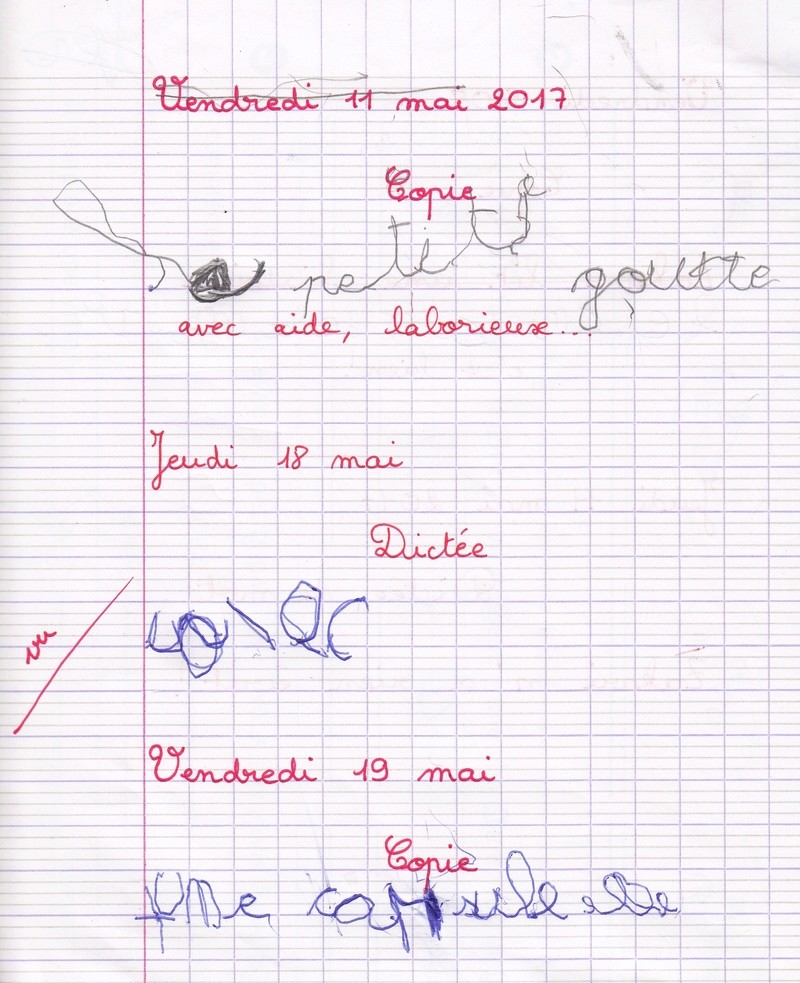 Vendredi 11 mai 2017
Copie
petite goutte
avec aide, laborieuse...
Jeudi 18 mai
Dictée
vu
Vendredi 19 mai
Copie
Une